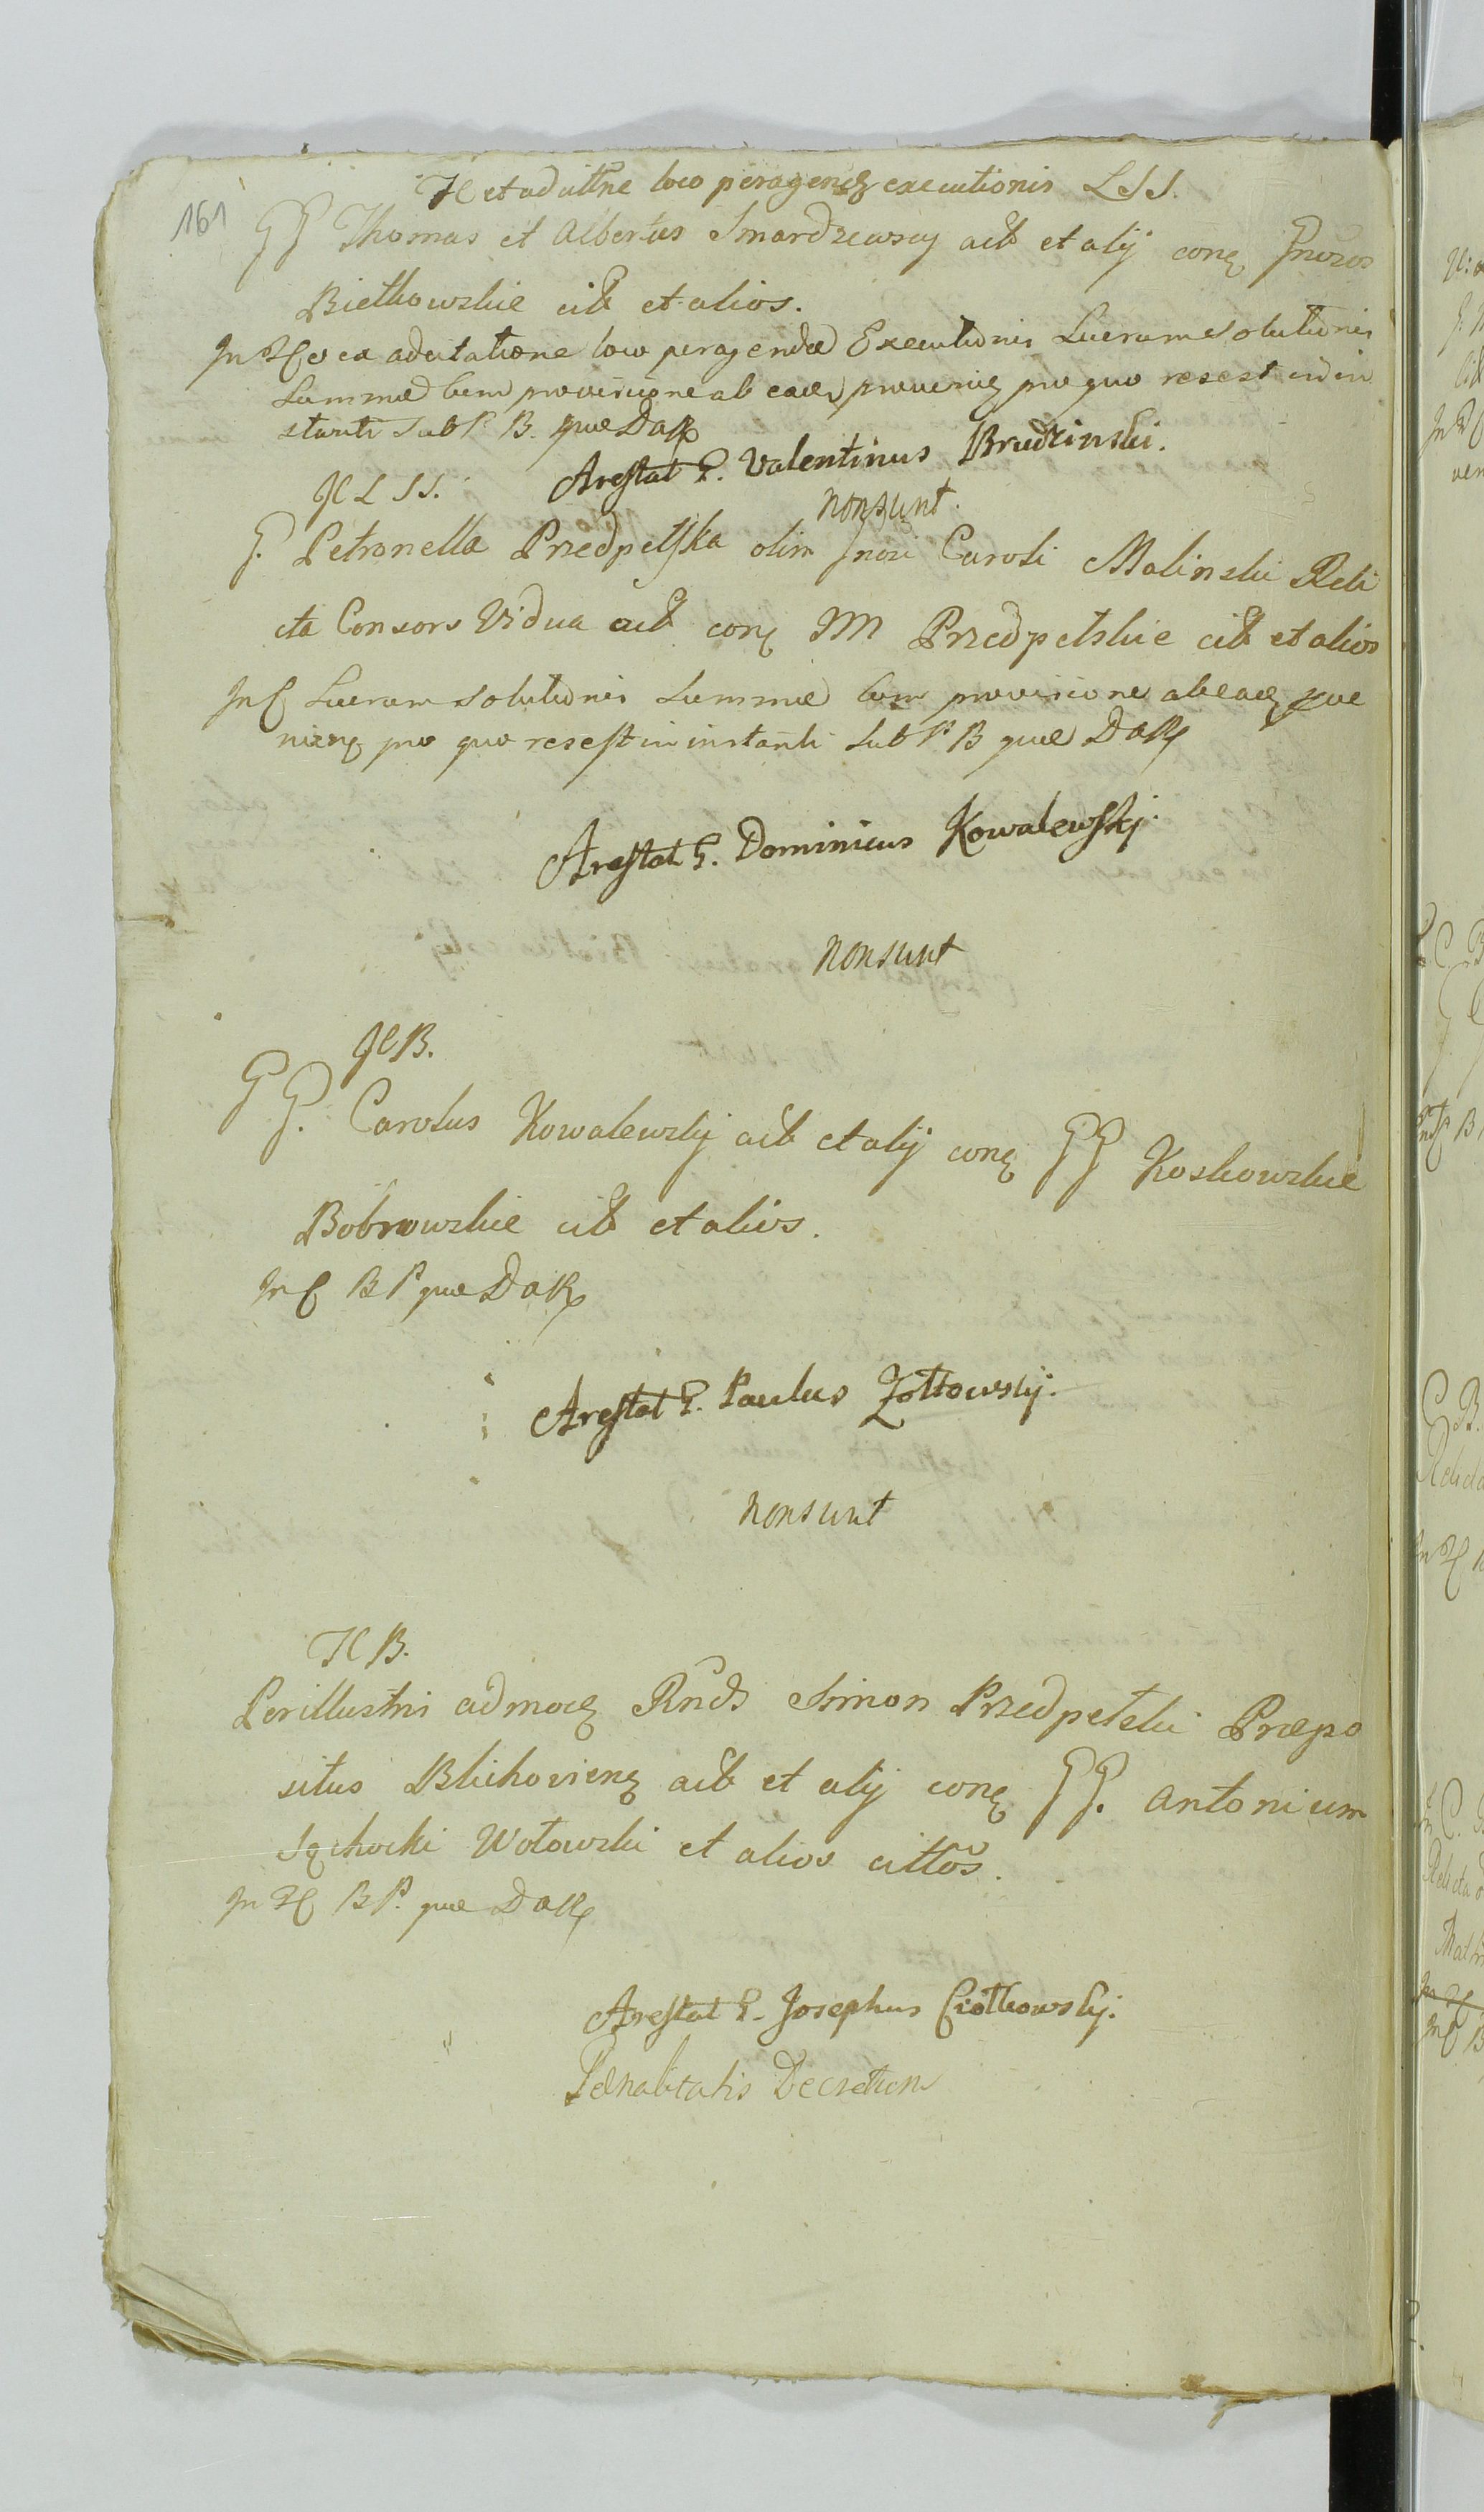 161
et ad cittne loco peragenq executionis LSS.
GG Thomas et Albertus Smardzewscy act et alij conq Gnrosos
Bielkowskie cit et alios.
ex adcitatione loco peragendæ Executionis Lucrum solutionis
Summæ cum provisione ab eadq proveniq pro quo res est in in
stanti sub P B. quæ Daq
IC LSS. Arestat G. Valentinus Brudzinski.
non sunt.
G. Petronella Przedpełska olim Gnosi Caroli Malinski Reli
cta Consors Vidua act conq MM Przedpełskie cit et alios
Lucrum solutionis Summæ cum provisione ab eadq prove
nienq pro quo res est in instanti sub P B quæ Daq
Arestat G. Dominicus Kowalewskj.
non sunt
IC B.
GG. Carolus Kowalewskij act et alij conq GG Koskowskie
Bobrowskie cit et alios.
In C B P quæ Daq
Arestat G. Paulus Żółtowskij.
non sunt
IC B.
Perillustris admodq Rnds Simon Przedpełski Præpo
situs Blichovienq act et alij conq GG. Antonium
Sęchocki Wołowski et alios cittos.
B P. quæ Daq
Arestat G. Josephus Ciołkowskj.
Pœnalitatis Decretum